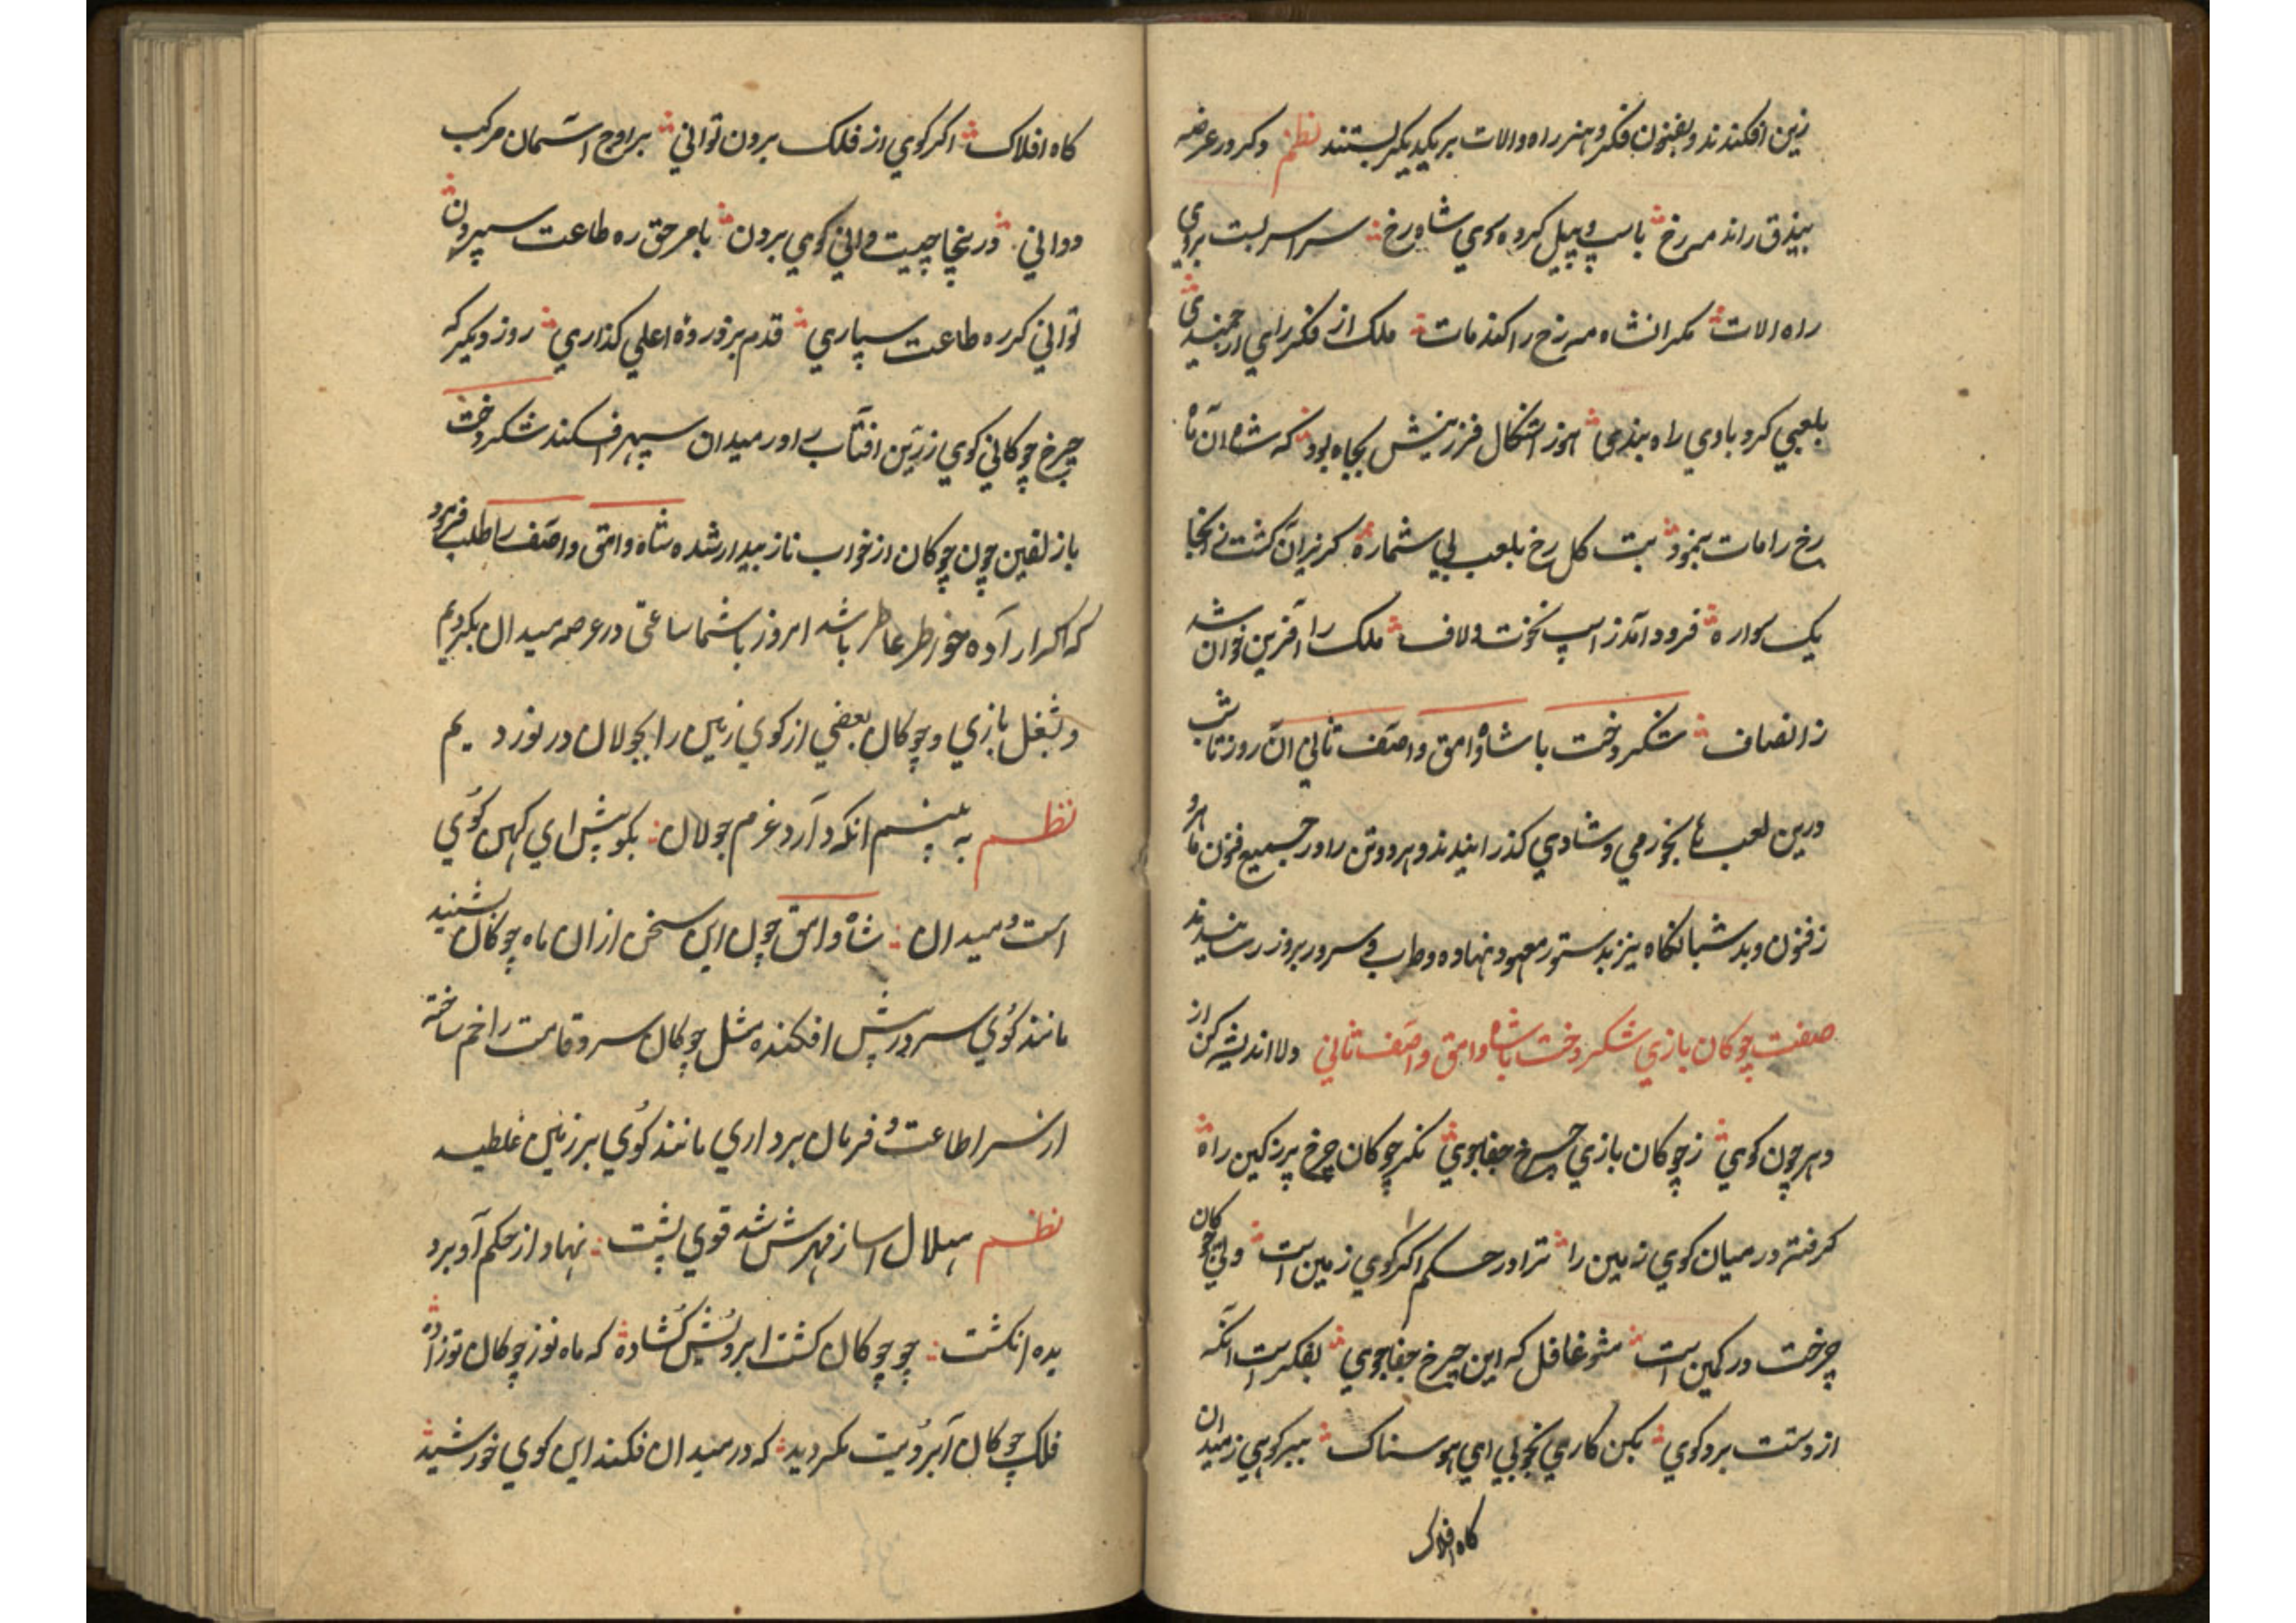 زین افکندند و بفنون فکر و هنر راه والات بر یکدیگر بستند نظم دکر در عرصه
بیذق راند مه رخ باسپ و پیل کرده سوی شاه رخ سراسر بست بروی
راه الات مکر انشاه مه رخ را کند مات ملک از فکر رای ارجمندی
بلعبی کرد بادی راه بندی هنوز اشکال فرزینش بجاه بود که شاه آن ماه
رخ را مات بنمود بت کل رخ بلعب بی شماره کریزان کشت نی اینجا
یک سواره فرود آمد ز اسپ نخوت و لاف ملک را آفرین خوان شد
ز انصاف شکردخت با شاه وامق و اصف ثانی آن روز تا شب
درین لعب ها بخورمی و شادی کذرانیدند و هر دو تن را در جمیع فنون ماهر و
ذفنون دید شبانکاه نیز بدستور معهود نهاده و طرب و سرور بروز رسانیدند
صفت چوکان بازی شکردخت باشاه وامق و اصف ثانی دلا اندیشه کن از
دهر چون کوی ز چوکان بازی چرخ جفاجوی نکر چوکان چرخ پر ز کین راه
کرفته در میان کوی زمین را ترا در حکم اکر کوی زمین است ولی چوکان
چرخت در کمین است مشو غافل که این چرخ جفاجوی بفکر است انکه
از دستت برد کوی بکن کاری بخوبی ای هوسناک ببر کوهی ز میدان
کاه افلاک
کاه افلاک اکر کوی از فلک برون توانی براوج آسمان مرکب
دوانی درینجا چیست دانی کوی بردن بامر حق ره طاعت سپردن
توانی کر ره طاعت سپاری قدم بر ذروه اعلی کذاری روز دیکر که
چرخ چوکانی کوی زرین افتاب را در میدان سپهر افکند شکردخت
باز لفین چون چوکان از خواب ناز بیدار شده شاه وامق و اصف را طلب فرمود
که اکر اراده خواطر عاطر باشد امروز باشما ساعتی در عرصه میدان بکردیم
و بشغل بازی و چوکان بعضی از کوی زمین را بجولان در نوردیم
نظم به بینم انکه دارد عزم جولان بکو پیش ای کهن کوی
است و میدان شاه وامق چون این سخن از ان ماه چوکان شنید
مانند کوی سر در پیش افکنده مثل چوکان سر و قامت را خم ساخته
از سر اطاعت و فرمان برداری مانند کوی بر زمین غلطید
نظم هلال اسا ز مهرش شد قوی پشت نهاد از حکم او بر د
یده انکشت چو چوکان کشت ابرویش کشاده که ماه نو ز چوکان تو زاده
فلک چوکان آبرویت مکر دید که در میدان فکند این کوی خورشید